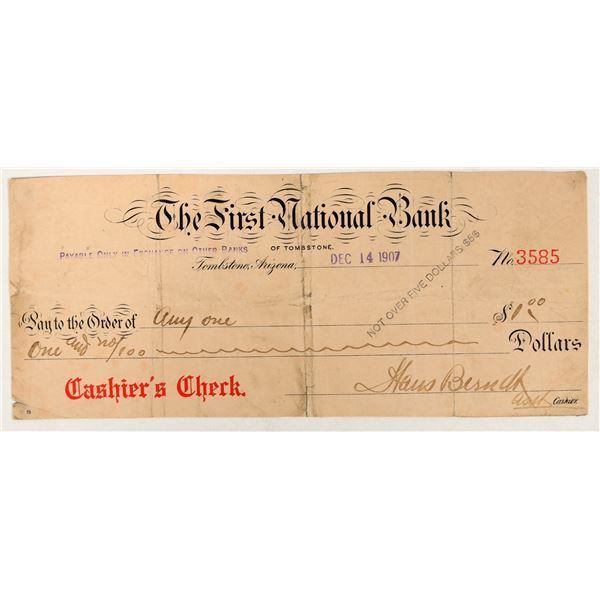 The First National Bank
OF TOMBSTONE.
PAYABLE ONLY IN EXCHANGE ON OTHER BANKS
Tombstone, Arizona, DEC 14 1907
No. 3585
NOT OVER FIVE DOLLARS $5$
Pay to the Order of any one $1.00
One and no/100 Dollars
Cashier's Check.
Hans Berndt
Asst Cashier.